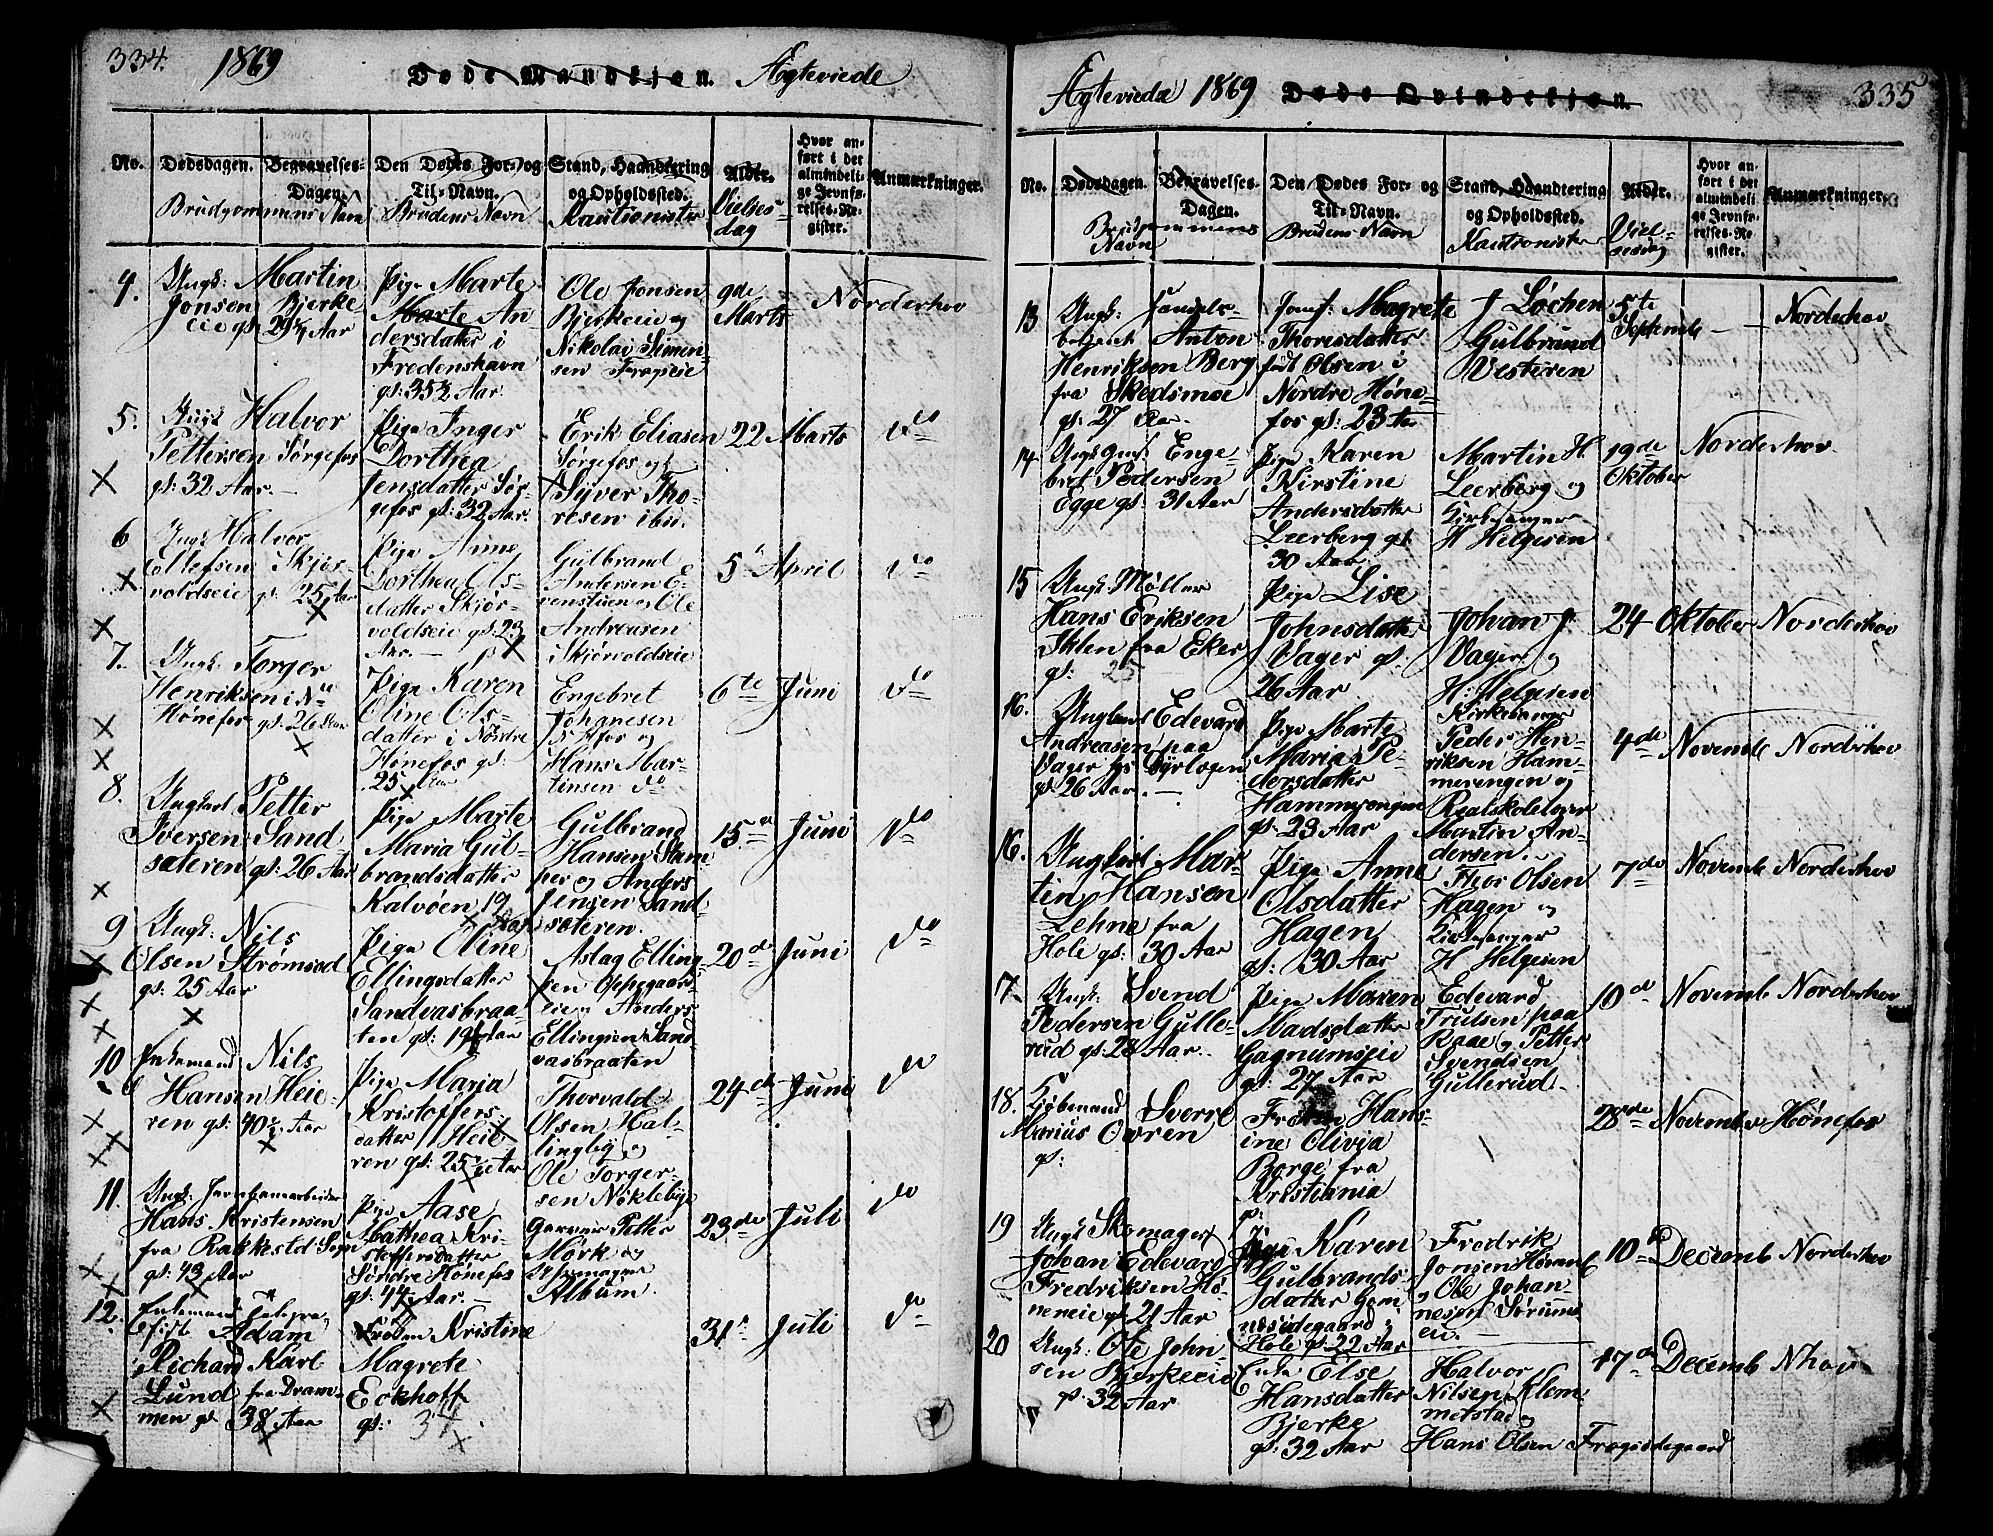 334. 1869 Døde Mandkjøn. Ægteviede
No.
Dødsdagen.
Begravelses-
Dagen.
Den Dødes For- og
Til-Navn.
Stand, Haandtering
og Opholdssted.
Alder.
Hvor an-
ført i det
almindeli-
ge Jevnfø-
relses-Re-
gister.
Anmærkninger.
Brudgommens Navn
Brudens Navn
Kautionister
Vielses-
dag
4.
Ungk: Martin
Jonsen Bjerke
eie gs:
Pige Marte
Marte An
dersdatter i
Fredenshavn
gs: 35 1/2 Aar.
Ole Jonsen
Bjerkeeie og
Nikolai Simen-
sen
9de
Marts
Norderhov
5.
Ungk Halvor
Pettersen Sørgefos
gs: 32 Aar. —
Pige Inger
Dorthea
Jensdatter Sør-
gefos gs: 32 Aar.
Erik Eliasen
Sørgefos og
Syver Tho-
resen ibd.
22 Marts
do
6
Ungk Halvor
Ellefsen Skjør-
voldseie gs: 25 Aar
Pige Anne
Dorthea Ols-
datter Skjør-
voldseie gs: 23
Aar. —
Gulbrand
Andersen E-
venstuen og Ole
Andreasen
Skjørvoldseie
5 April
do
7.
Ungk: Torger
Henriksen i Nre
Hønefos gs: 26 Aar
Pige Karen
Oline Ols-
datter i Nordre
Hønefos gs:
25 Aar
Engebret
Johanesen
og
Hans Mar-
tinsen do
6te Juni
do
8.
Ungkarl Petter
Iversen Sand-
sæteren gs: 26 Aar
Pige Marte
Maria Gul-
brandsdatter
Kalvøen 19
Aar
Gulbrand
Hansen Stam
per og Anders
Jensen Sand-
sæteren.
15de Juni
do
9
Ungk: Nils
Olsen Strømsod
gs: 25 Aar
Pige Oline
Ellingsdatter
Sandvasbraa-
ten gs: 19 Aar
Aslag Elling-
sen Oppegaar-
eie og Anders
Ellingsen Sand-
vasbraaten
20de Juni
do
10
Enkemand Nils
Hansen Heie-
ren gs: 40 1/2 Aar
Pige Maria
Kristoffers
datter Heie-
ren gs: 25 Aar
Thorvald
Olsen Hal-
lingby og
Ole Torger-
sen Nøkleby
24de Juni
do
11.
Ungk: Jernbanearbeider
Hans Kristensen
fra Rakkestd Sogn
gs: 43 Aar
Pige Aase
Mathea Kri-
stoffersdatter
Søndre Hønefos
gs: 44 Aar. —
Garver Petter
Mørk og
Album.
23de Juli
do
12.
Enkemand Telegra-
fist Adam
Richard Karl
Lund fra Dram-
men gs 38 Aar
Frøken Kristine
Magrete
Eckhoff
gs: 34.
31 Juli
do
Ægteviede 1869 Døde Qvindekjøn. 335
No.
Dødsdagen.
Begravelses-
Dagen.
Den Dødes For- og
Til-Navn.
Stand, Haandtering
og Opholdssted.
Alder.
Hvor an-
ført i det
almindeli-
ge Jevnfø-
relses-Re-
gister.
Anmærkninger.
Brudgommens
Navn
Brudens Navn
Kautionister
13
Ungk: Handels-
betjent Anton
Henriksen Berg
fra Skedsmoe
gs: 27 Aar.
Jomf: Magrete
Thorisdatter
født Olsen i
Nordre Høne-
fos gs: 23 Aar
J Løchen
Gulbrand
Vesteren
5te
Septemb
Norderhov
14
Ungk Gmd. Enge-
bret Pedersen
Egge gs: 31 Aar
Pige Karen
Kirstine
Andersdatter
Leerberg gs:
30 Aar
Martin H.
Leerberg og
Kirkesanger
H Helgesen
19de
Oktober
Norderhov
15
Ungk: Møller
Hans Eriksen
Iklen fra Eker
gs: 25
Pige Lise
Johnsdatter
Vager gs:
26 Aar.
Johan J.
Vager og
H: Helgesen
Kirkesanger
24 Oktober
Norderhov
16.
Ungkarl Edevard
Andreasen paa
Vager
gs 26 Aar. —
Pige Marte
Maria Pe-
dersdatter
Hammerengen
gs: 23 Aar
Peder Hen-
riksen Ham-
merengen og
Realskolelærer
Martin An-
dersen.
4de Novemb
Norderhov
16.
Ungkarl Mar-
tin Hansen
Lehne fra
Hole gs: 30 Aar
Pige Anne
Olsdatter
Hagen
gs: 30 Aar
Thor Olsen
Hagen og
Kirkesanger
H Helgesen
7de Novemb
Norderhov
17.
Ungk: Svend
Pedersen Gulle-
rud gs: 28 Aar.
Pige Maren
Madsdatter
Gagnumseie
gs: 27 Aar
Edevard
Trulsen paa
Raae og Petter
Svendsen
Gullerud.
10de Novemb
Norderhov
18.
Kjøbmand Sverre
Marius Ovren
gs:
Frøken Hans-
ine Olivia
Borge fra
Kristiania
gs:
28de Novemb
Hønefos
19
Ungk Skomager
Johan Edevard
Fredriksen Hø-
neneie gs 21 Aar
Pige Karen
Gulbrands-
datter Gom-
nesødegaard,
Hole gs 22 Aar
Fredrik
Jonsen Hønen
og Ole Johan-
nesen Sørum-
eie. —
10de Decemb
Norderhov
20
Ungk: Ole John-
sen Bjerkeeie
gs: 32 Aar
Enke Else
Hansdatter
Bjerke
gs: 32 Aar
Halvor
Nilsen Klem-
metstad og
Hans Olsen Frogsødegaard
17de Decemb
Nhov